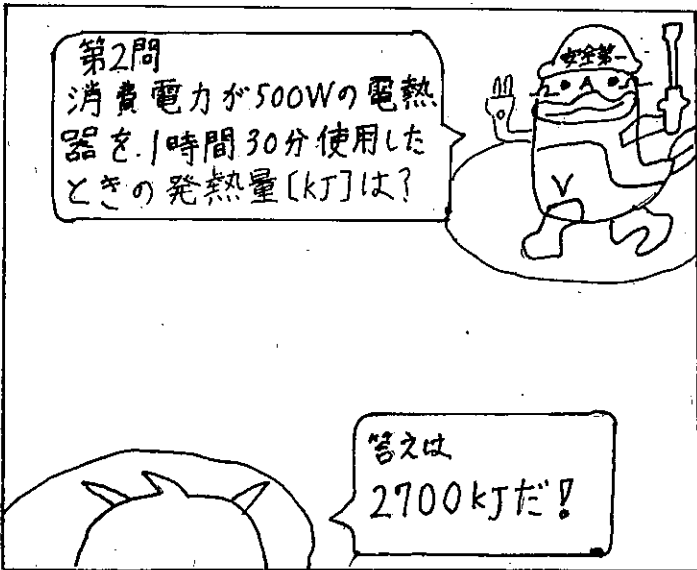 第2問
消費電力が500Wの電熱
器を.1時間30分使用した
ときの発熱量[kJ]は?
安全第一
答えは
2700kJだ!